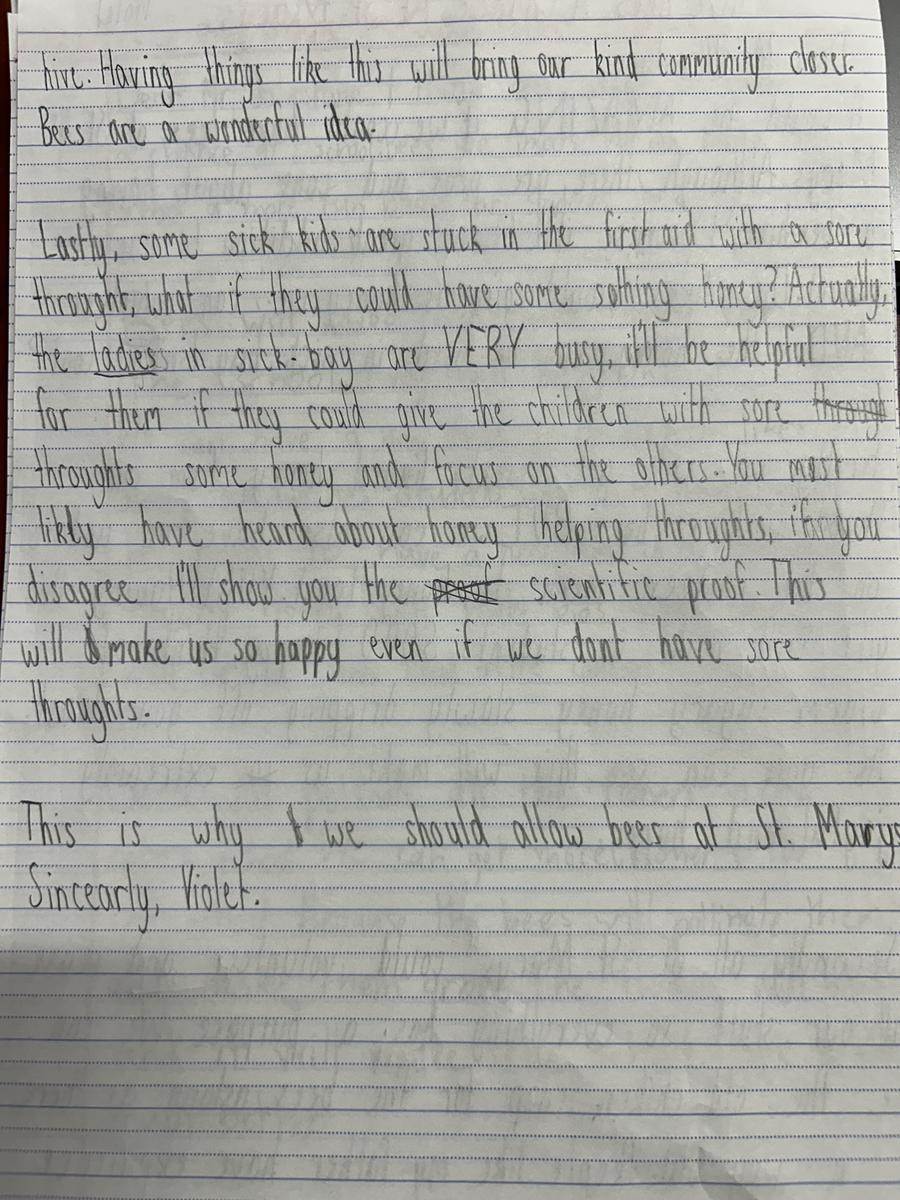 hive. Having things like this will bring our kind community closer.
Bees are a wonderful idea.
Lastly, some sick kids are stuck in the first aid with a sore
throught, what if they could have some sothing honey? Actually,
the ladies in sick-bay are VERY busy, it'll be helpful
for them if they could give the children with sore through
throughts some honey and focus on the others. You most
likly have heard about honey helping throughts, if you
disagree I'll show you the proof scientific proof. This
will make us so happy even if we dont have sore
throughts.
This is why we should allow bees at St. Marys
Sincearly, Violet.